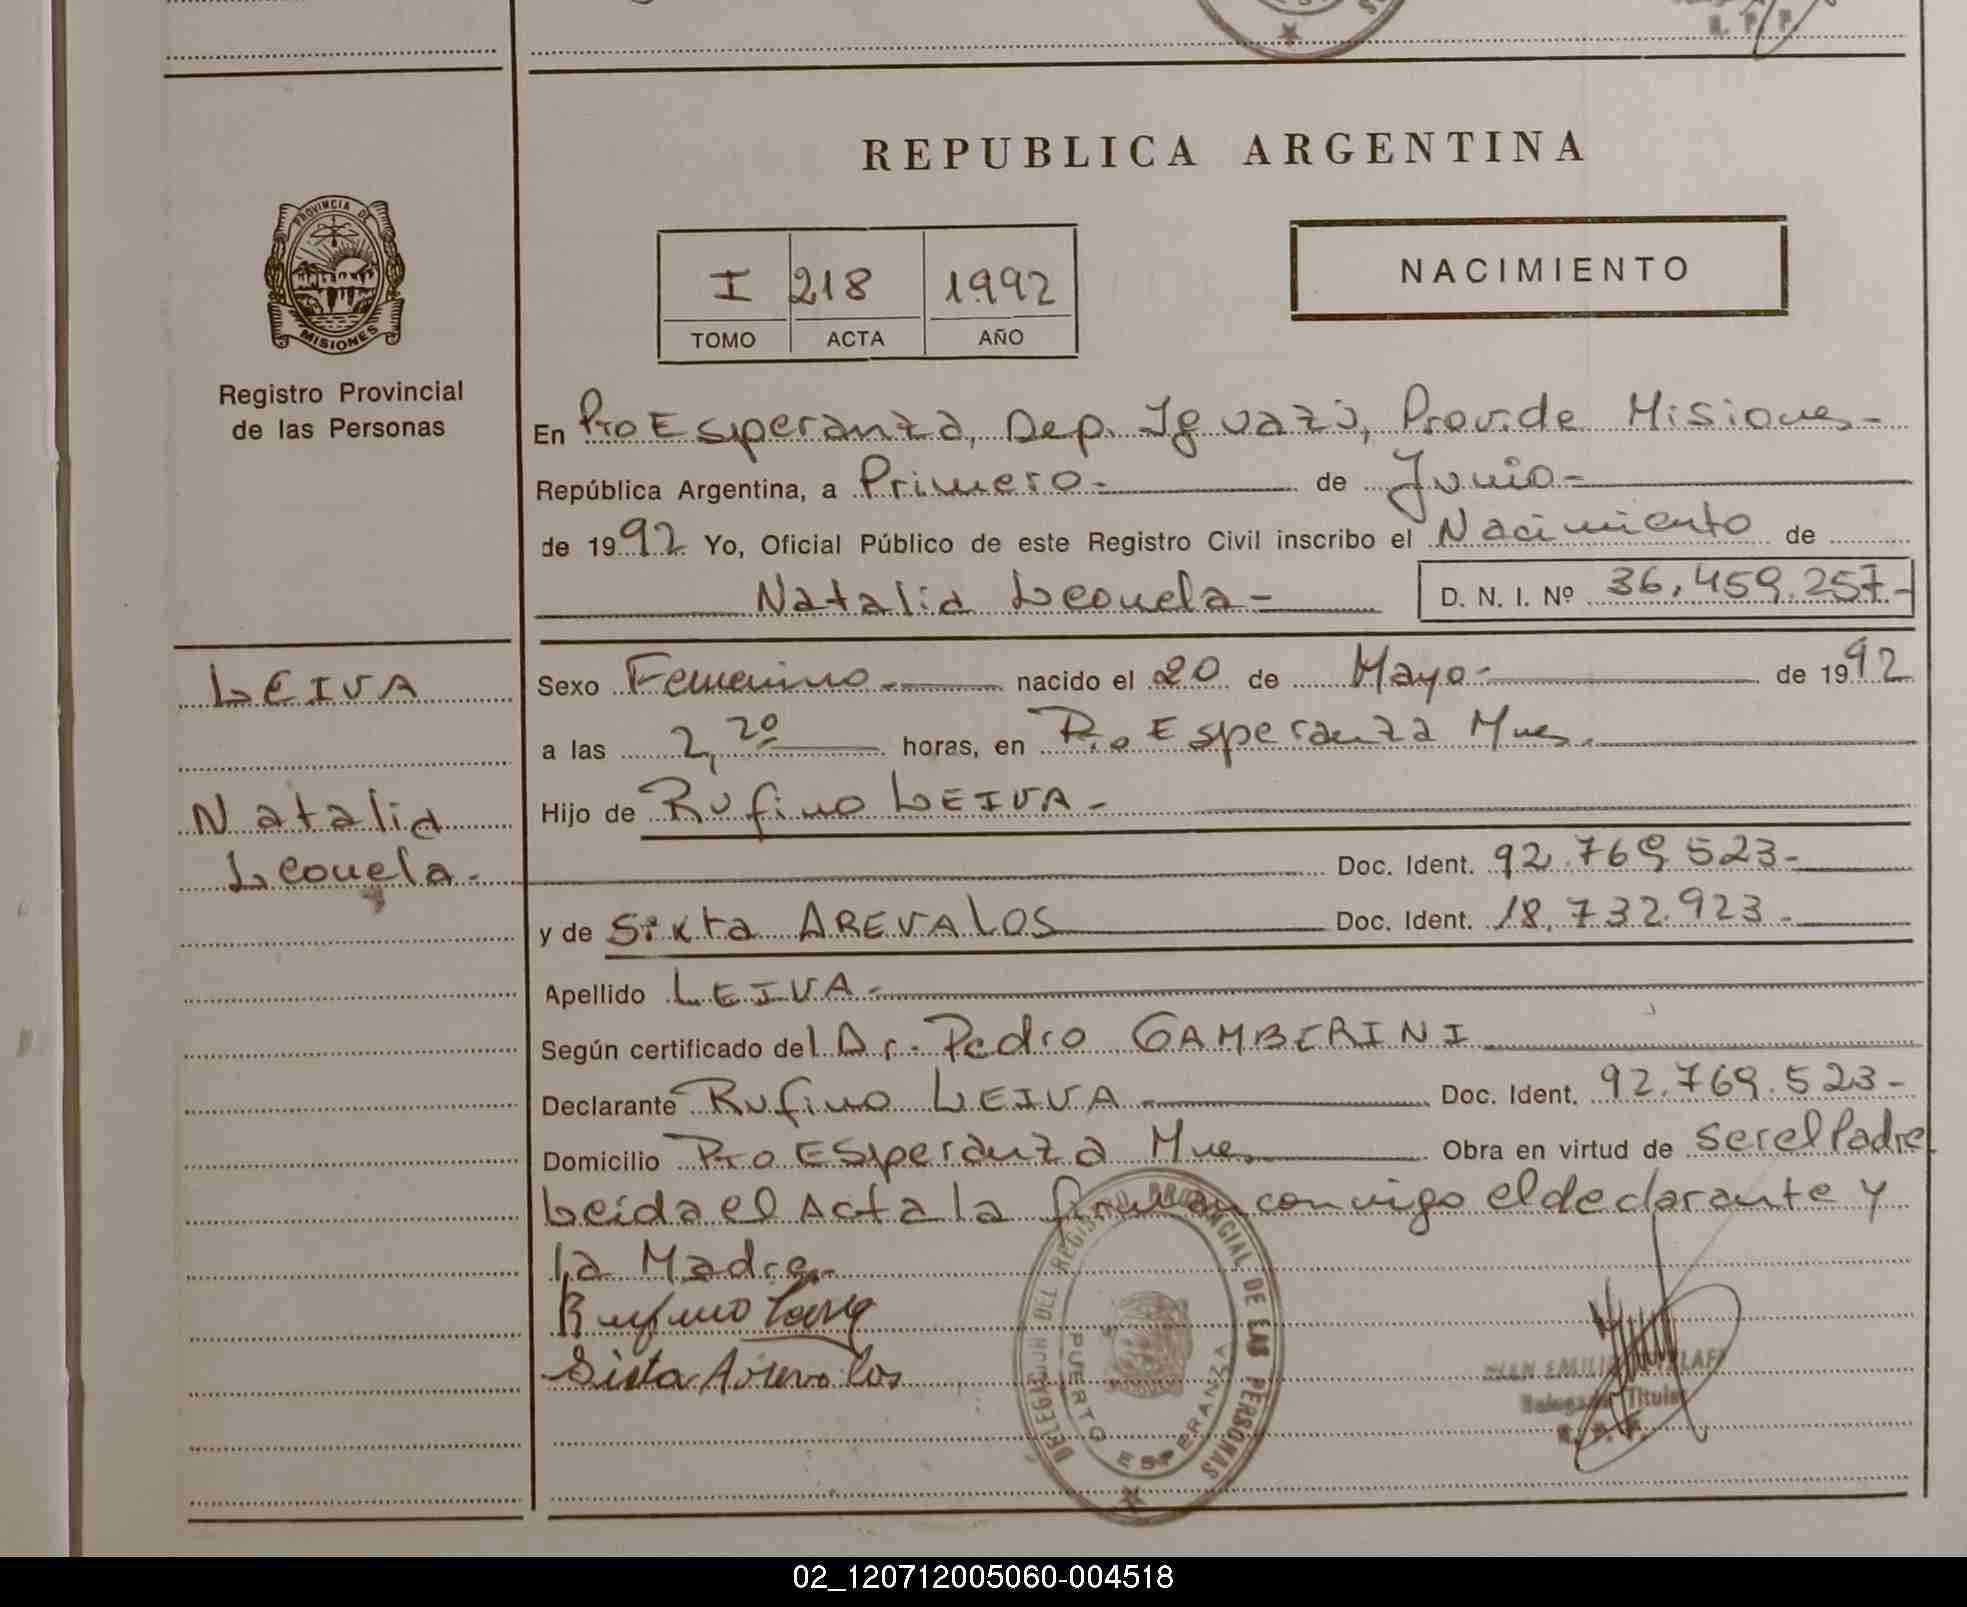 R. P. P.
REPUBLICA ARGENTINA
PROVINCIA DE
MISIONES
Registro Provincial
de las Personas
I 218 1992
TOMO ACTA AÑO
NACIMIENTO
En Pto Esperanza, Dep. Iguazú, Prov. de Misiones-
República Argentina, a Primero- de Junio-
de 1992 Yo, Oficial Público de este Registro Civil inscribo el Nacimiento de
Natalia Leonela- D. N. I. Nº 36,459.257-
LEIVA
Natalia
Leonela-
Sexo Femenino- nacido el 20 de Mayo- de 1992
a las 2,20 horas, en Pto Esperanza Mnes.
Hijo de Rufino LEIVA-
Doc. Ident. 92.769.523-
y de Sixta AREVALOS Doc. Ident. 18,732.923-
Apellido LEIVA-
Según certificado del Dr. Pedro GAMBERINI
Declarante Rufino LEIVA- Doc. Ident. 92.769.523-
Domicilio Pto Esperanza Mnes Obra en virtud de ser el Padre
Leida el Acta la firman conmigo el declarante y
la Madre-
Rufino
Sista Arevalos
DELEGACION DEL REGISTRO PROVINCIAL DE LAS PERSONAS
PUERTO ESPERANZA
JUAN EMILIO
Delegado Titular
R. P. P.
02_120712005060-004518